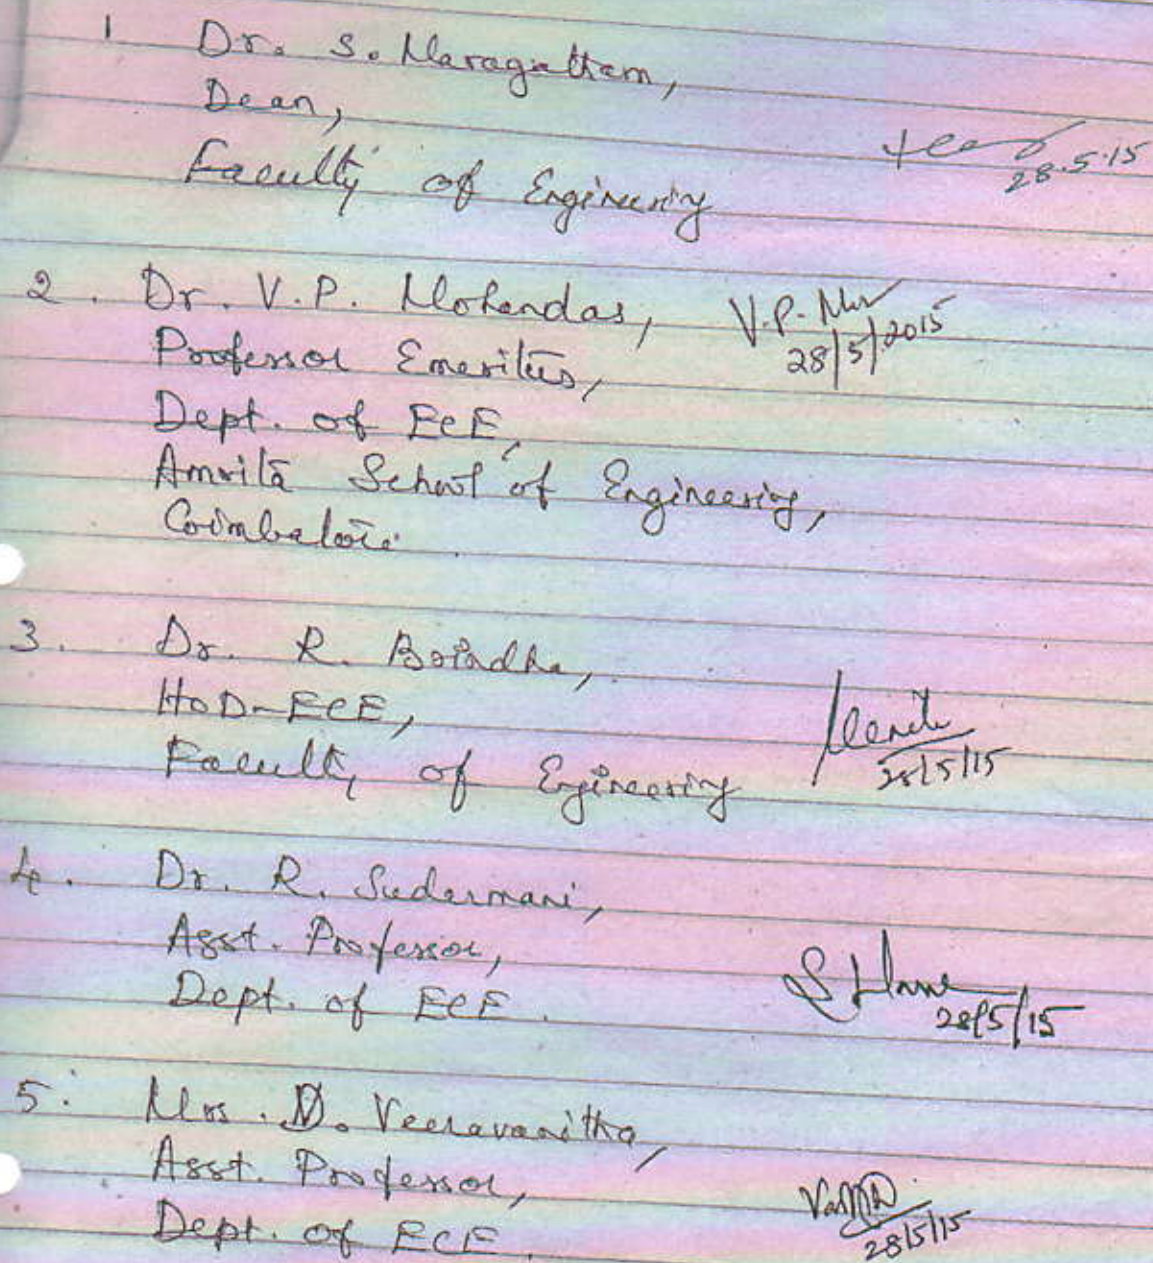 1 Dr. S. Maragatham,
Dean,
28.5.15
Faculty of Engineering
2. Dr. V.P. Mohandas,
V.P.
28/5/2015
Professor Emeritus,
Dept. of ECE,
Amrita School of Engineering,
Coimbatore.
3. Dr. R. Brindha,
HoD-ECE,
28/5/15
Faculty of Engineering
4. Dr. R. Sudarmani,
Asst. Professor,
Dept. of ECE.
28/5/15
5. Mrs. D. Veeravanitha,
Asst. Professor,
Dept. of ECE.
28/5/15